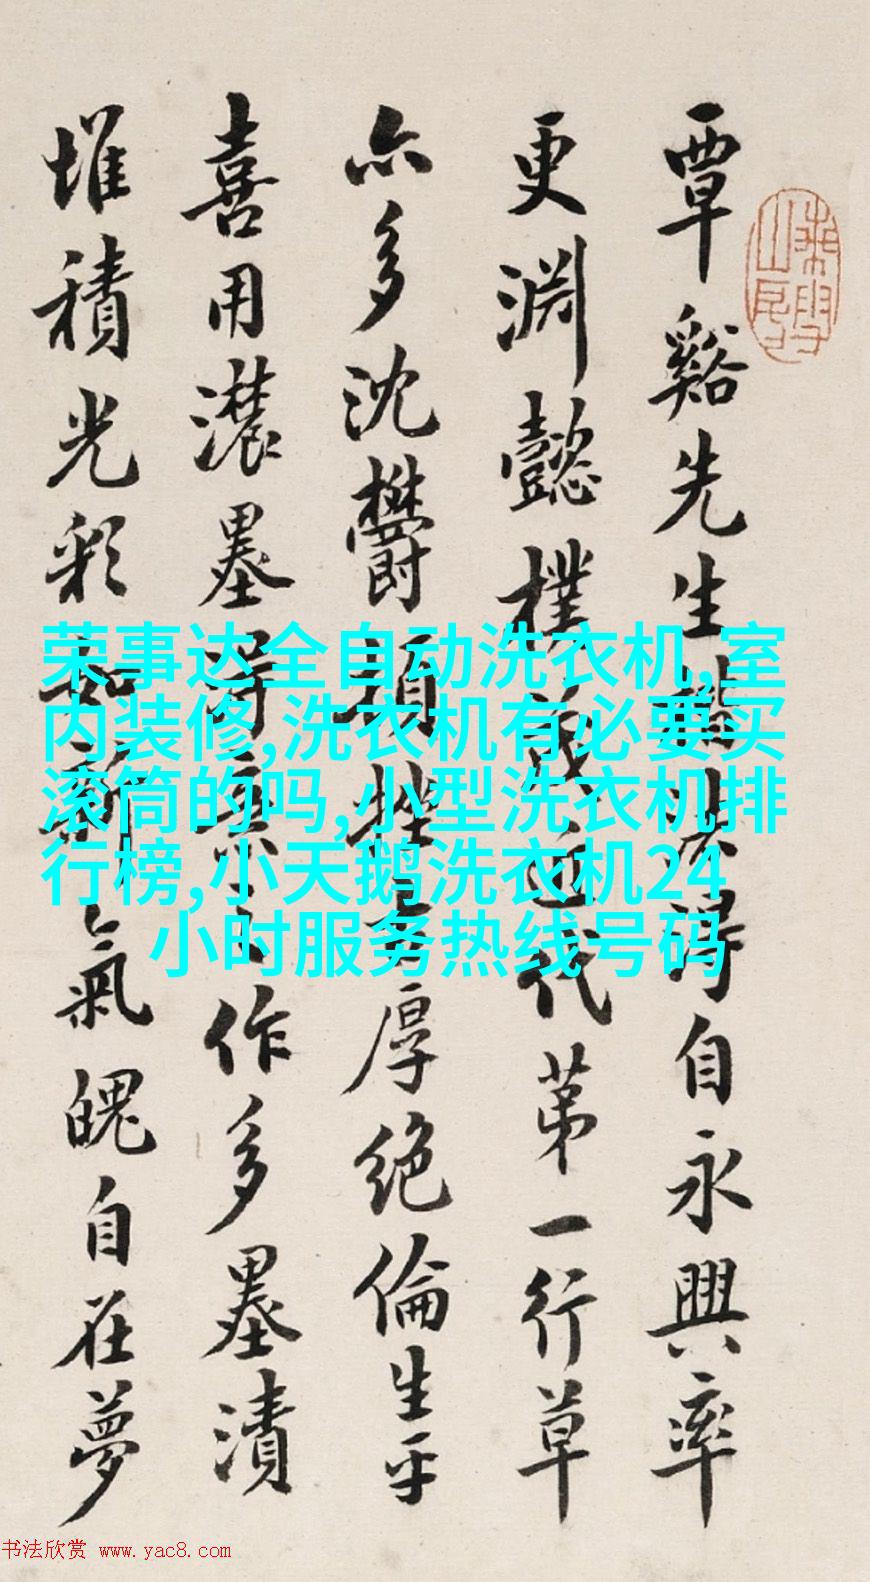 覃谿先生楷法得自永興率
更淵懿樸茂近代苐一行草
亦多沈欝頓挫厚絶倫生平
喜用濃墨得意之作多墨漬
堆積光彩如新氣魄自在夢
荣事达全自动洗衣机,室
内装修,洗衣机有必要买
滚筒的吗,小型洗衣机排
行榜,小天鹅洗衣机24
小时服务热线号码
书法欣赏 www.yac8.com